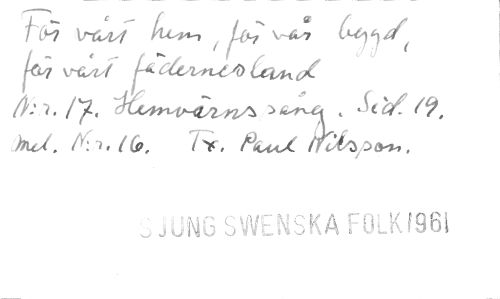 För vårt hem, för vår bygd,
för vårt fädernesland
N:r. 17. Hemvärnssång. Sid. 19.
mel. N:r. 16. Tx. Paul Nilsson.
SJUNG SWENSKA FOLK 1961